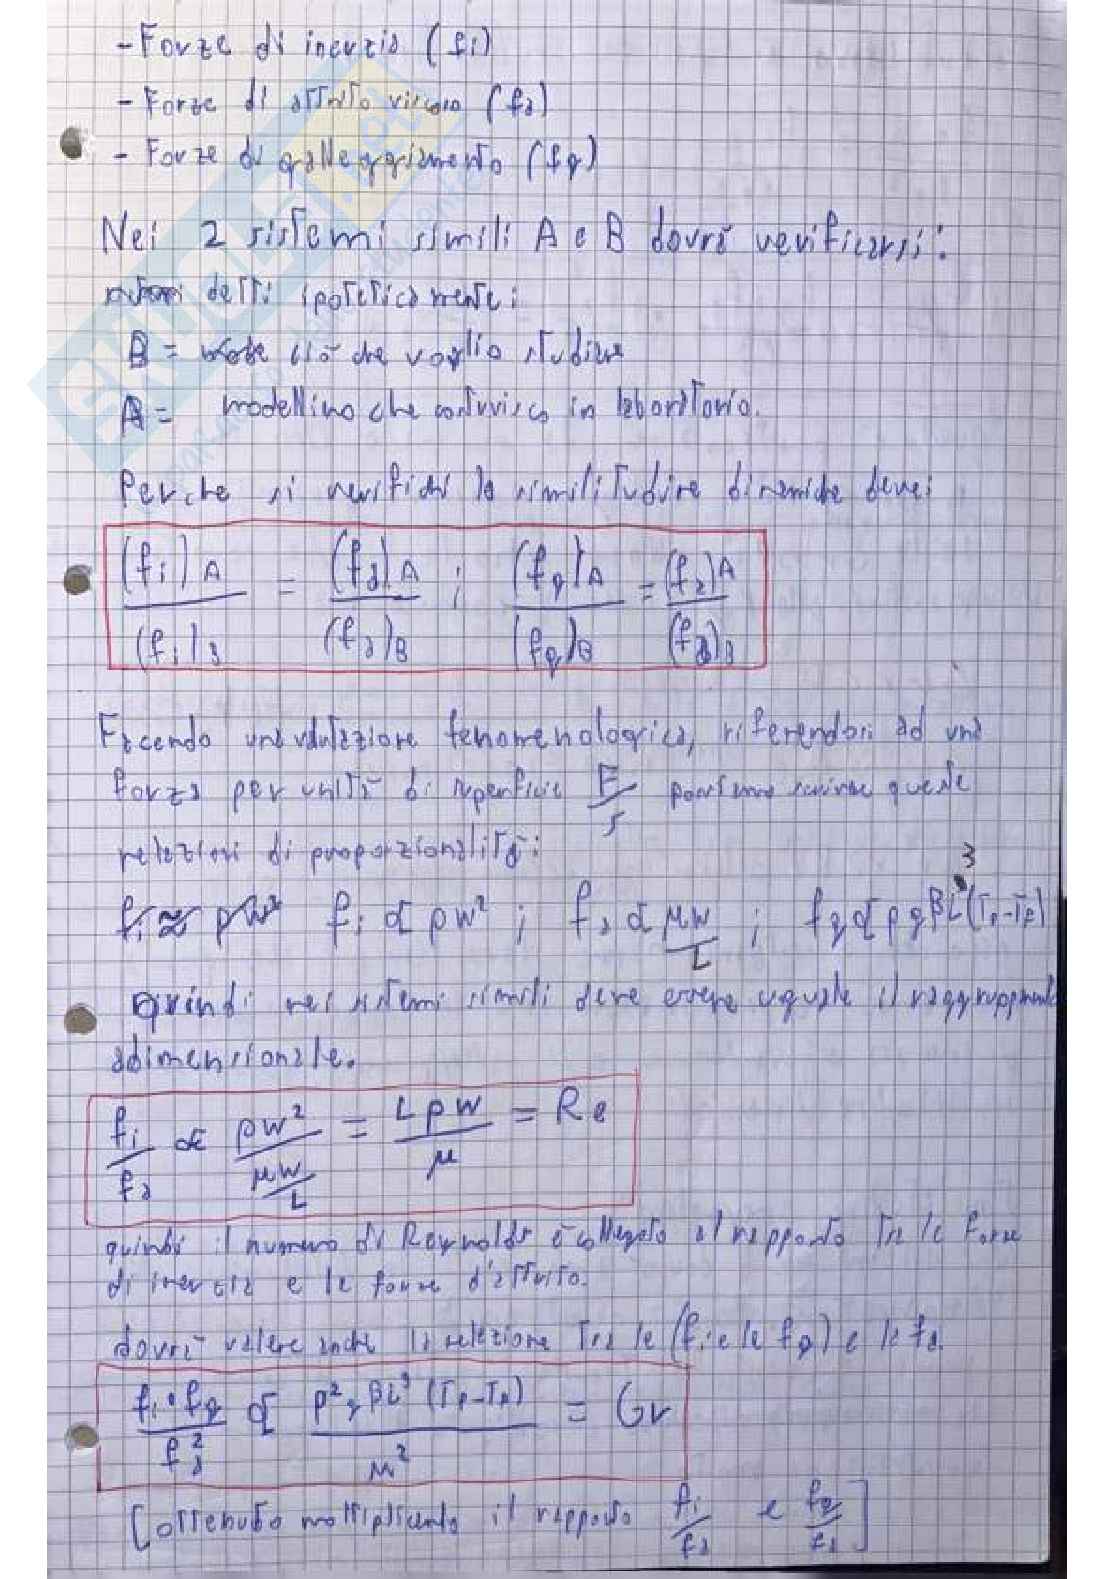 - Forze di inerzia (fi)
- Forze di attrito viscoso (fa)
- Forze di galleggiamento (fg)
Nei 2 sistemi simili A e B dovrà verificarsi:
detti ipoteticamente:
B = ciò che voglio studiare
A = modellino che costruisco in laboratorio.
Perché si verifichi la similitudine dinamica deve:
(fi)A / (fi)B = (fa)A / (fa)B ; (fg)A / (fg)B = (fa)A / (fa)B
Facendo una valutazione fenomenologica, riferendosi ad una
forza per unità di superficie F/S possiamo scrivere queste
relazioni di proporzionalità:
fi ≈ ρw² fi ∝ ρw² ; fa ∝ μw/L ; fg ∝ ρgβL³(Tp-TF)
Quindi nei sistemi simili deve essere uguale il raggruppamento
adimensionale.
fi/fa ∝ ρw² / (μw/L) = Lρw/μ = Re
quindi il numero di Reynolds è collegato al rapporto tra le forze
di inerzia e le forze d'attrito.
dovrà valere anche la relazione tra le (fi e le fg) e le fa.
fi·fg / fa² ∝ ρ²gβL³(Tp-TF) / μ² = Gr
[ottenuto moltiplicando il rapporto fi/fa e fg/fa]